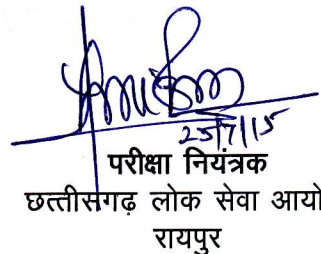 25/7/15
परीक्षा नियंत्रक
छत्तीसगढ़ लोक सेवा आयो
रायपुर